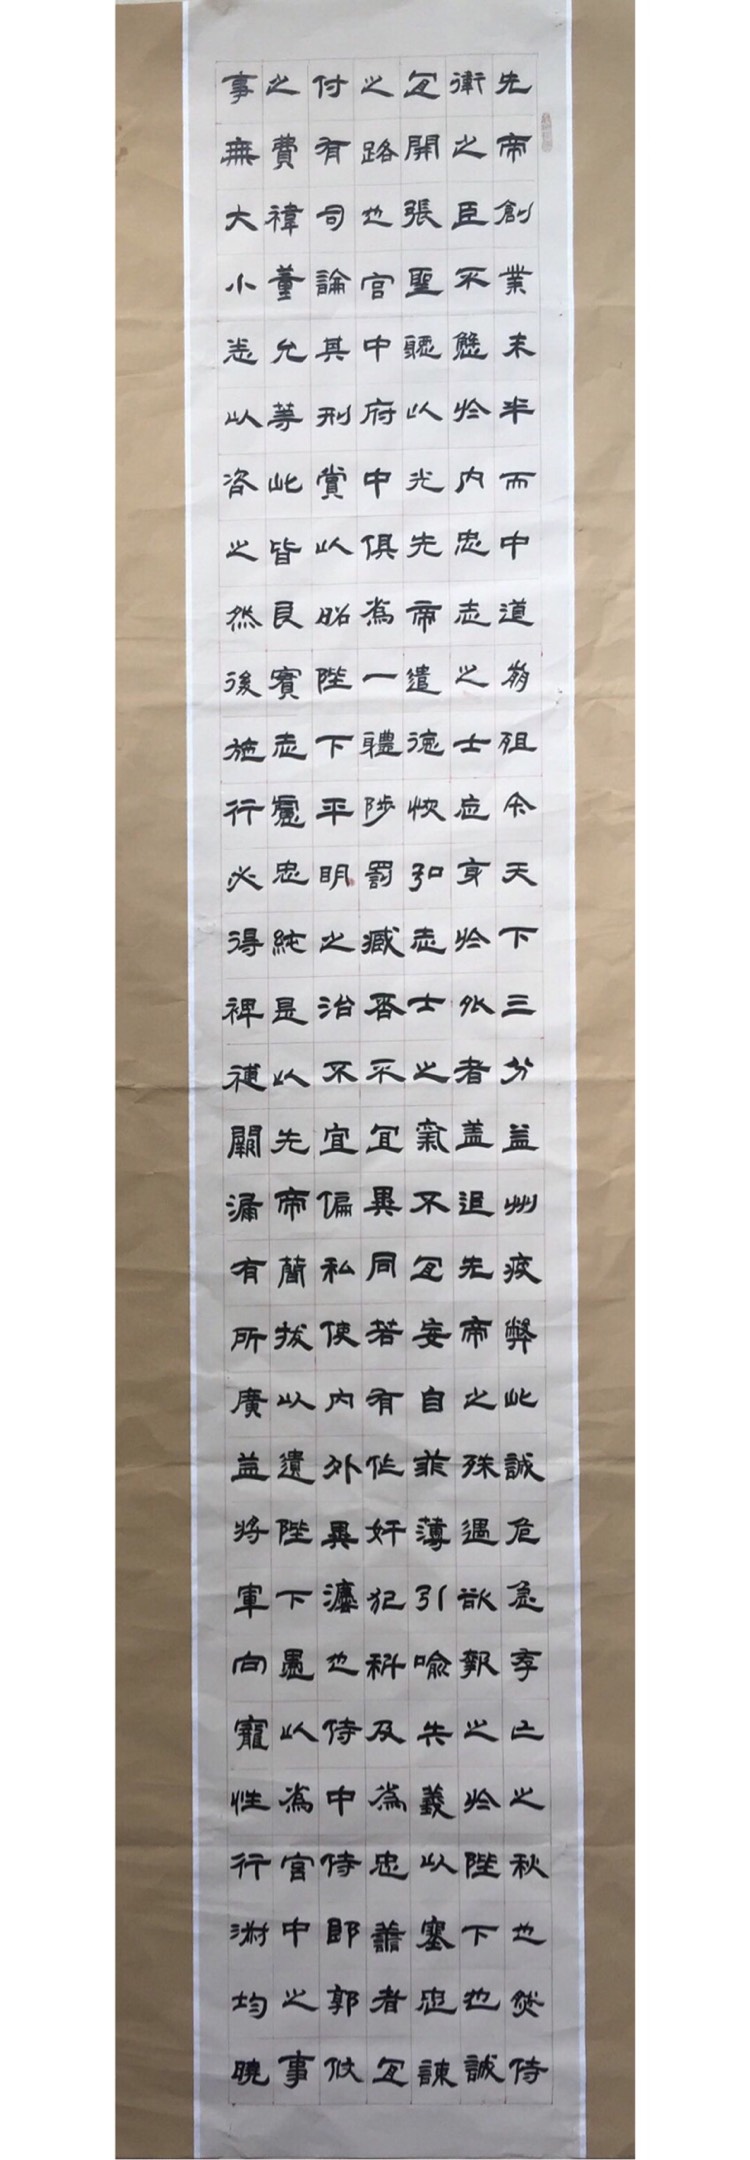 先帝創業未半而中道崩殂今天下三分益州疲弊此誠危急存亡之秋也然侍
衛之臣不懈於内忠志之士忘身於外者盖追先帝之殊遇欲報之於陛下也誠
宜開張聖聽以光先帝遺德恢弘志士之氣不宜妄自菲薄引喻失義以塞忠諫
之路也宮中府中俱為一體陟罰臧否不宜異同若有作奸犯科及為忠善者宜
付有司論其刑賞以昭陛下平明之治不宜偏私使内外異灋也侍中侍郎郭攸
之費禕董允等此皆良實志慮忠純是以先帝簡拔以遺陛下愚以為宮中之事
事無大小悉以咨之然後施行必得裨補闕漏有所廣益將軍向寵性行淑均曉